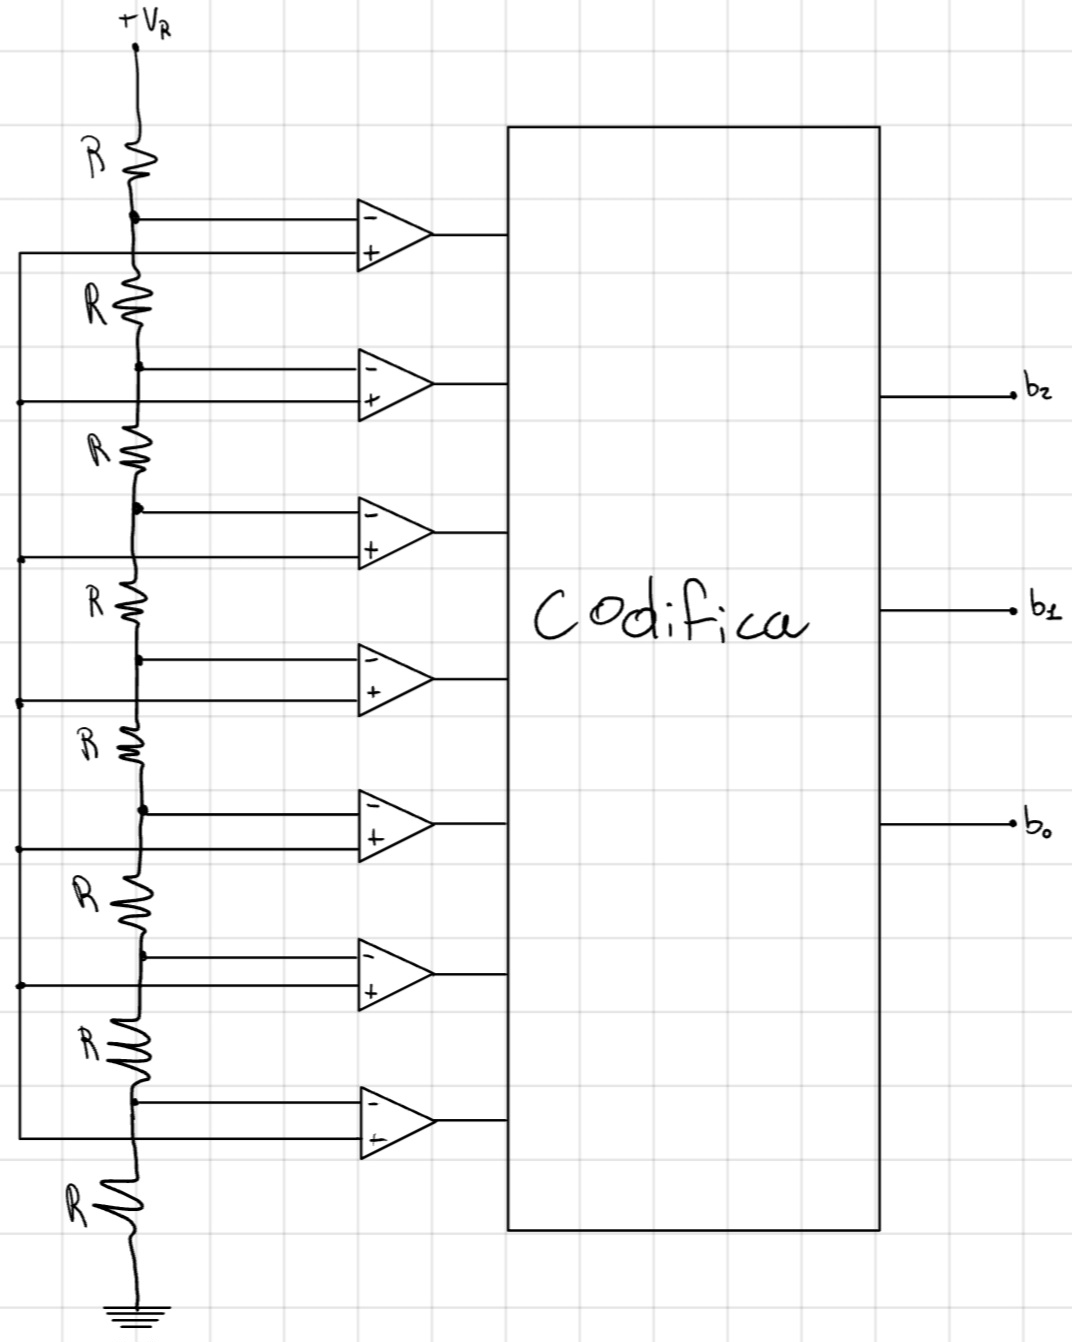 +VR
R
- +
R
- +
R
- +
R
- +
R
- +
R
- +
R
- +
R
Codifica
b2
b1
b0